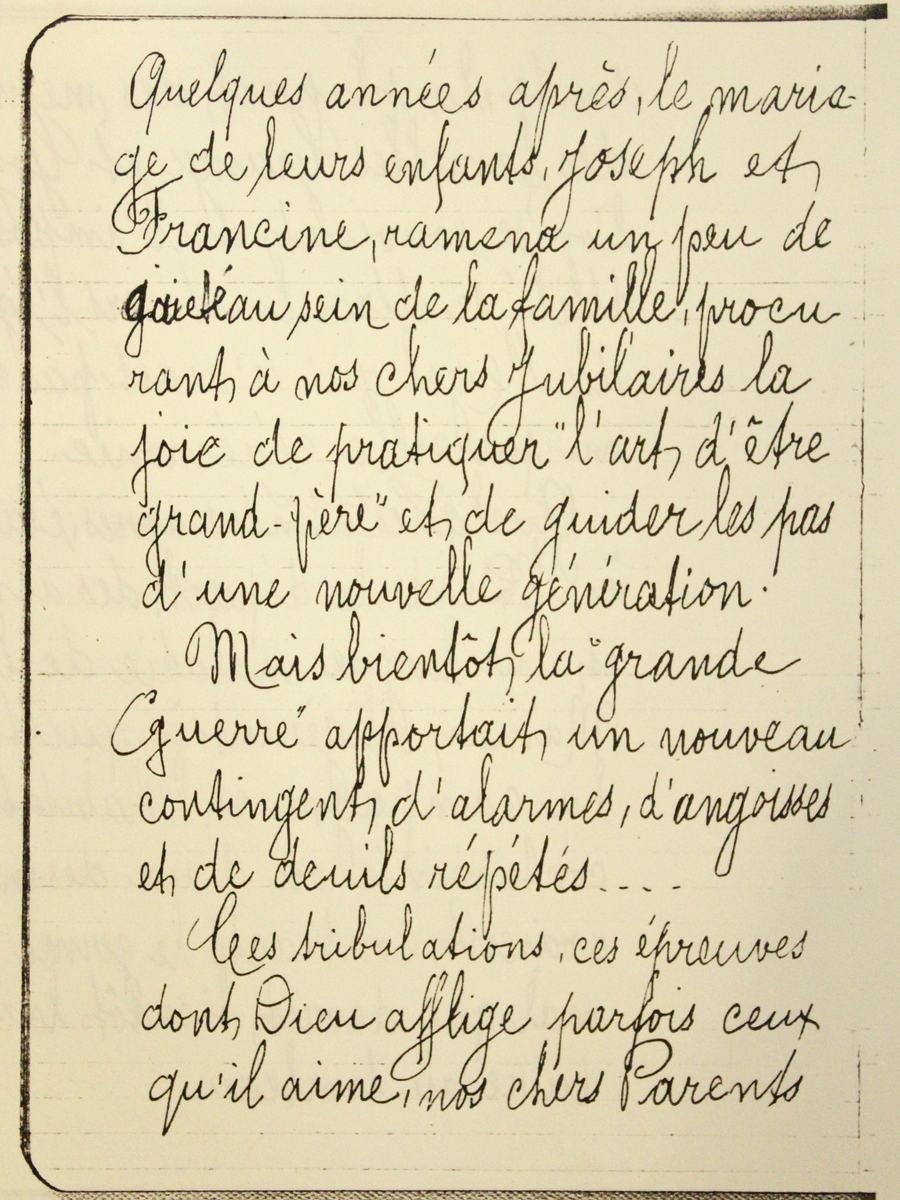 Quelques années après, le maria-
ge de leurs enfants, Joseph et
Francine, ramena un peu de
gaieté au sein de la famille, procu-
rant à nos chers Jubilaires la
joie de pratiquer "l'art d'être
grand-père" et de guider les pas
d'une nouvelle génération.
Mais bientôt la "grande
Guerre" apportait un nouveau
contingent d'alarmes, d'angoisses
et de deuils répétés....
Ces tribulations, ces épreuves
dont Dieu afflige parfois ceux
qu'il aime, nos chers Parents